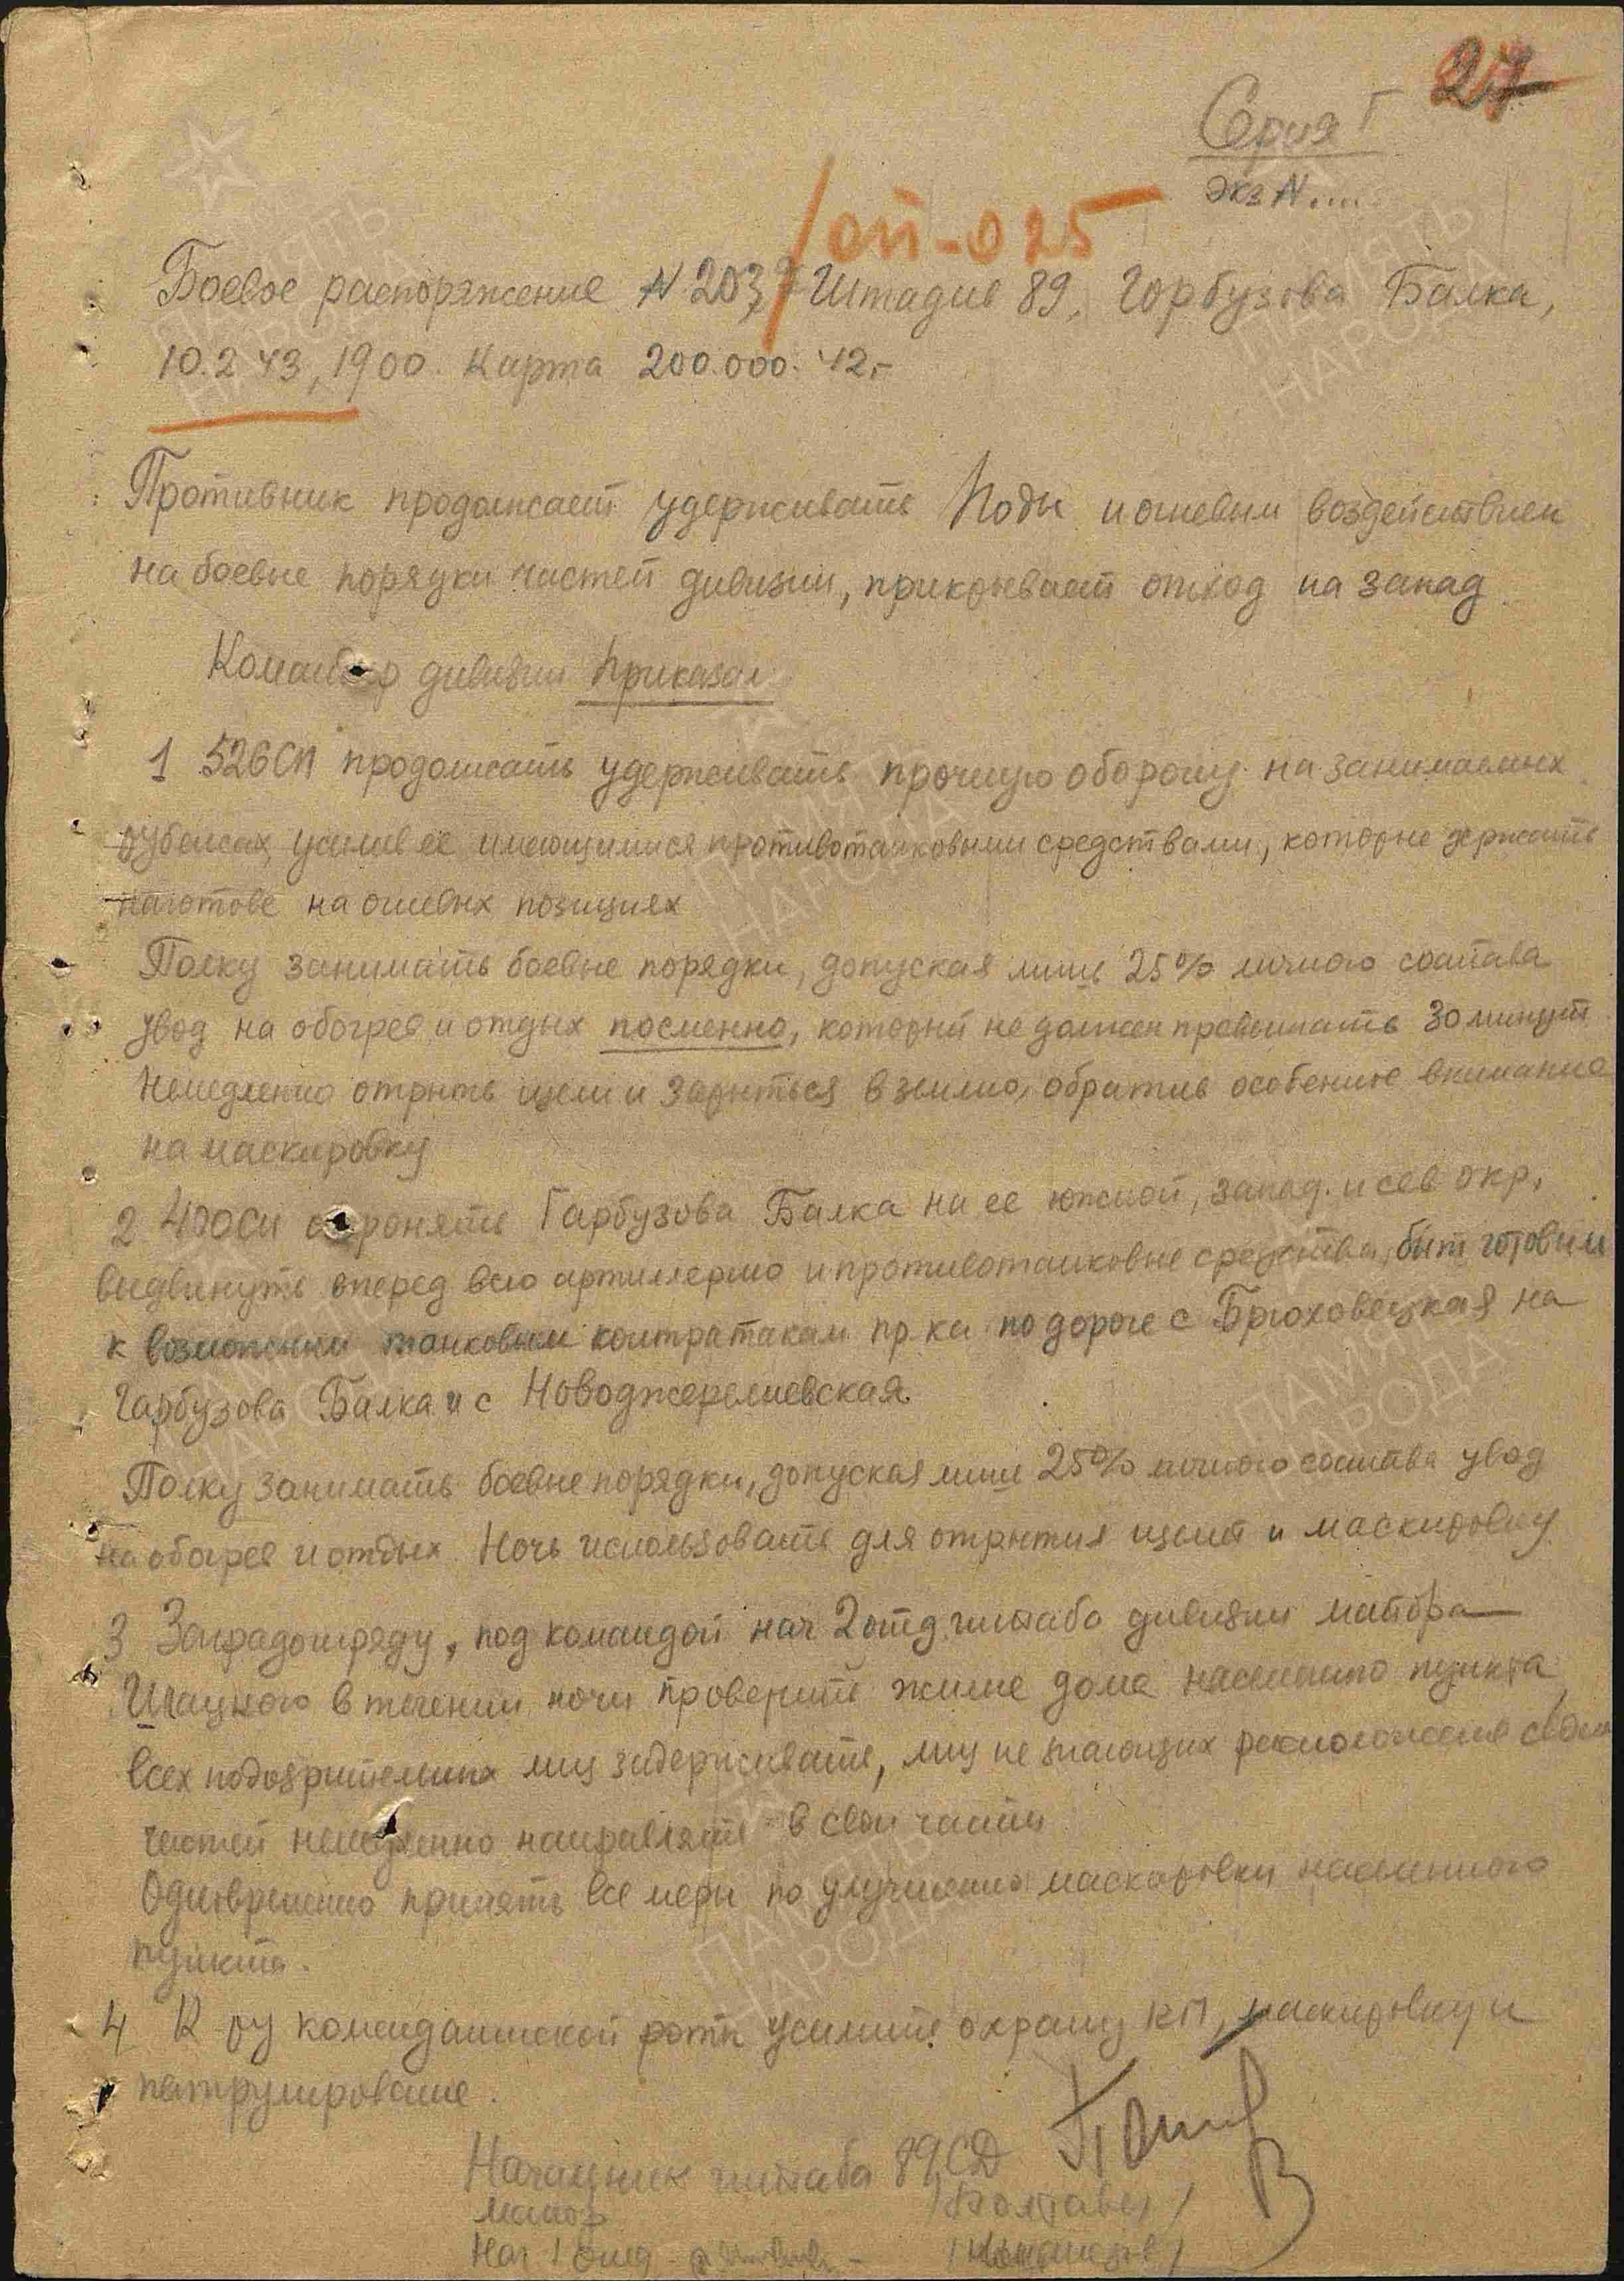 27
Серия Г
экз N....
/оп-025
Боевое распоряжение N 2037 Штадив 89, Горбузова Балка,
10.2 43, 1900. Карта 200.000. 42.-
Противник продолжает удерживать Поды и огневым воздействием
на боевые порядки частей дивизии, прикрывает отход на запад
Командир дивизии приказал
1 526 СП продолжать удерживать прочную оборону на занимаемых
рубежах, усилив ее имеющимися противотанковыми средствами, которые держать
наготове на огневых позициях
Полку занимать боевые порядки, допуская лишь 25% личного состава
увод на обогрев и отдых посменно, который не должен превышать 30 минут
Немедленно отрыть щели и зарыться в землю, обратив особение внимание
на маскировку
2 400 СП оборонять Гарбузова Балка на ее южной, запад. и сев окр,
выдвинуть вперед всю артиллерию и противотанковые средства, быть готовым
к возможным танковым контратакам пр-ка по дороге с Брюховецкая на
Гарбузова Балка и с Новоджерелиевская.
Полку занимать боевые порядки, допуская лишь 25% личного состава увод
на обогрев и отдых. Ночь использовать для отрытия щелей и маскировку
3 Заградотряду, под командой нач 2 отд. штаба дивизии майора
Шацкого в течении ночи проверить жилые дома населенного пункта,
всех подозрительных лиц задерживать, лиц не знающих расположение своих
частей немедленно направлять в свои части
Одновременно принять все меры по улучшению маскировки населенного
пункта.
4 К-ру комендантской роты усилить охрану КП, маскировку и
патрулирование.
Начальник штаба 89 СД
майор /Полтавец/
Нач 1 отд
ПАМЯТЬ
НАРОДА
ПАМЯТЬ
НАРОДА
ПАМЯТЬ
НАРОДА
ПАМЯТЬ
НАРОДА
ПАМЯТЬ
НАРОДА
ПАМЯТЬ
НАРОДА